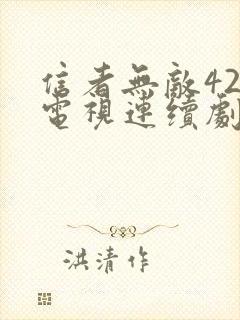 信者無敵42
電視連續劇
洪清作